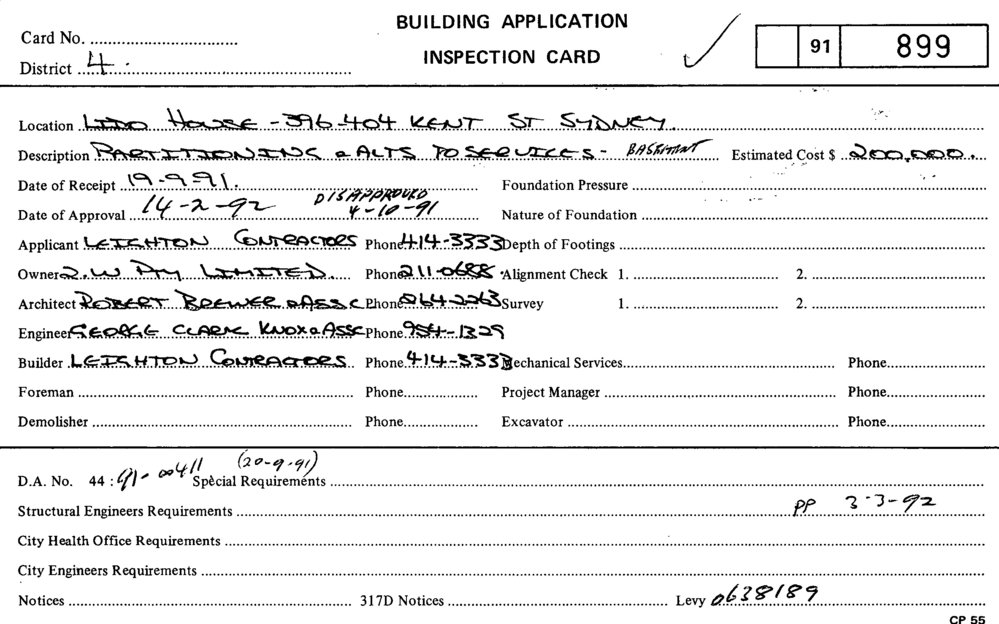 BUILDING APPLICATION
INSPECTION CARD
Card No.
District 4.
91 899
Location LIDO HOUSE - 396-404 KENT ST SYDNEY.
Description PARTITIONING & ALTS TO SERVICES - BASEMENT Estimated Cost $ 200,000.
Date of Receipt 19-9-91. Foundation Pressure
Date of Approval 14-2-92 DISAPPROVED 4-10-91 Nature of Foundation
Applicant LEIGHTON CONTRACTORS Phone 414-3333 Depth of Footings
Owner 2.W PTY LIMITED. Phone 211-0688 Alignment Check 1. 2.
Architect ROBERT BREWER & ASSC Phone 264-2263 Survey 1. 2.
Engineer GEORGE CLARK KNOX & ASSC Phone 954-1329
Builder LEIGHTON CONTRACTORS Phone 414-3333 Mechanical Services Phone
Foreman Phone Project Manager Phone
Demolisher Phone Excavator Phone
D.A. No. 44 : 91-00411 (20-9-91) Special Requirements
Structural Engineers Requirements PP 3-3-92
City Health Office Requirements
City Engineers Requirements
Notices 317D Notices Levy 0638189
CP 55